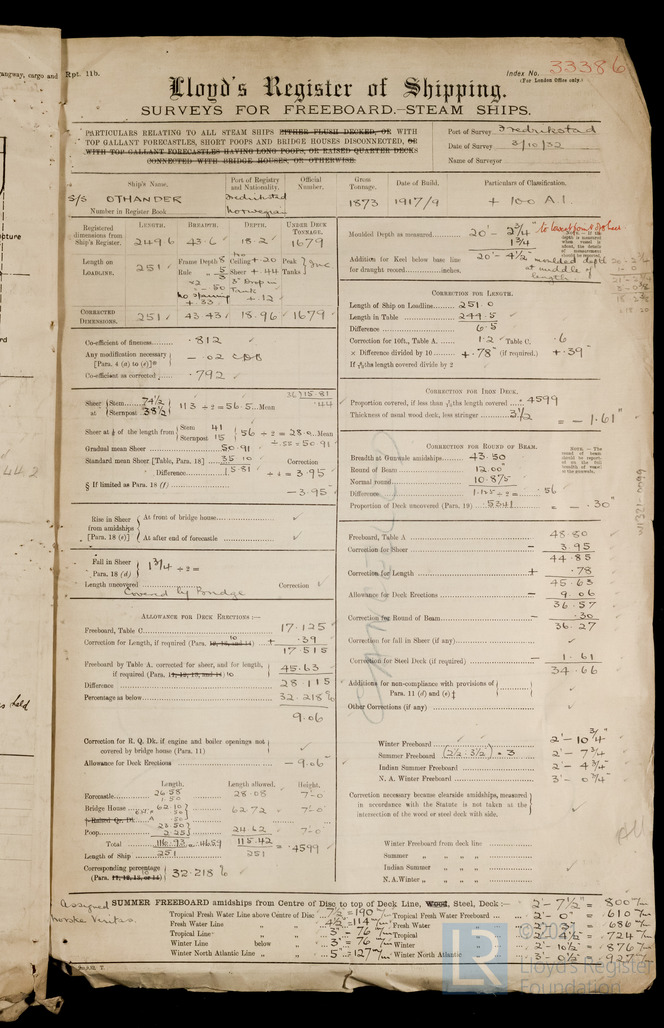 angway, cargo and
Rpt. 11b.
Index No. 33386
(For London Office only.)
Lloyd's Register of Shipping.
SURVEYS FOR FREEBOARD.—STEAM SHIPS.
PARTICULARS RELATING TO ALL STEAM SHIPS EITHER FLUSH DECKED, OR WITH
TOP GALLANT FORECASTLES, SHORT POOPS AND BRIDGE HOUSES DISCONNECTED, OR
WITH TOP GALLANT FORECASTLES HAVING LONG POOPS, OR RAISED QUARTER DECKS
CONNECTED WITH BRIDGE HOUSES, OR OTHERWISE.
Port of Survey Fredrikstad
Date of Survey 3/10/32
Name of Surveyor
Ship's Name. Port of Registry and Nationality. Official Number. Gross Tonnage. Date of Build. Particulars of Classification.
S/S OTHANDER Fredrikstad Norwegian 1873 1917/9 + 100 A.1.
Number in Register Book
Registered dimensions from Ship's Register. LENGTH. 249.6 BREADTH. 43.6 DEPTH. 18.2 UNDER DECK TONNAGE. 1679
Length on LOADLINE. 251 Frame Depth 8 No Ceiling + 20 Peak Tanks
Rule 5 Sheer + .44
3
x2
.50
No sparring
+ .33
+ .12
CORRECTED DIMENSIONS. 251 43.43 18.96 1679
Co-efficient of fineness .812
Any modification necessary [Para. 4 (a) to (e)]* — .02 CDB
Co-efficient as corrected .792
Sheer at Stem 74½ Sternpost 38½ 113 ÷ 2 = 56.5 Mean
36)15.81
.44
Sheer at ⅛ of the length from Stem 41 Sternpost 15 56 ÷ 2 = 28.0 Mean
÷ .55 = 50.91
Gradual mean Sheer 50.91
Standard mean Sheer [Table, Para. 18] 35.10 Correction
Difference 15.81 ÷ 4 = 3.95
§ If limited as Para. 18 (f)
— 3.95
Rise in Sheer from amidships [Para. 18 (e)] At front of bridge house
At after end of forecastle
Fall in Sheer Para. 18 (d) 1¾ ÷ 2 =
Length uncovered Correction
Covered by Bridge
ALLOWANCE FOR DECK ERECTIONS :—
Freeboard, Table C 17.125
Correction for Length, if required (Para. 12, 13, and 14) 10 + .39
17.515
Freeboard by Table A, corrected for sheer, and for length, if required (Para. 11, 12, 13, and 14) 10 45.63
Difference 28.115
Percentage as below 32.218%
9.06
Correction for R. Q. Dk. if engine and boiler openings not covered by bridge house (Para. 11)
Allowance for Deck Erections — 9.06
Length. Length allowed. Height.
Forecastle 26.58 1.50 28.08 7'-0
Bridge House 62.10 62.72 7'-0
† Raised Qr. Dk.
Poop 23.50 24.62 7'-0
2.25
Total 116.93 = .4659 115.42 = .4599
Length of Ship 251 251
Corresponding percentage (Para. 11, 12, 13, or 14) 10 32.218%
Moulded Depth as measured 20' - 2¾" to lowest point of sheer
1¾"
20' - 4½" moulded depth at middle of length
Addition for Keel below base line for draught record inches.
CORRECTION FOR LENGTH.
Length of Ship on Loadline 251.0
Length in Table 244.5
Difference 6.5
Correction for 10ft., Table A. 1.2 Table C. .6
× Difference divided by 10 + .78" (if required.) + .39"
If 6/10ths length covered divide by 2
CORRECTION FOR IRON DECK.
Proportion covered, if less than 7/10ths length covered .4599
Thickness of usual wood deck, less stringer 3½
= — 1.61"
CORRECTION FOR ROUND OF BEAM.
Breadth at Gunwale amidships 43.50
Round of Beam 12.00"
Normal round 10.875
Difference 1.125 ÷ 2 = .56
Proportion of Deck uncovered (Para. 19) .5341 = — .30"
Freeboard, Table A 48.80
Correction for Sheer — 3.95
44.85
Correction for Length + .78
45.63
Allowance for Deck Erections — 9.06
36.57
Correction for Round of Beam — .30
36.27
Correction for fall in Sheer (if any)
Correction for Steel Deck (if required) — 1.61
34.66
Additions for non-compliance with provisions of Para. 11 (d) and (e) ‡
Other Corrections (if any)
CANCELLED
W1321-0099
Winter Freeboard 2' - 10¾"
Summer Freeboard (2½ . 3½) . 3 2' - 7¾
Indian Summer Freeboard 2' - 4¾
N. A. Winter Freeboard 3' - 0¾
Correction necessary because clearside amidships, measured in accordance with the Statute is not taken at the intersection of the wood or steel deck with side.
Winter Freeboard from deck line
Summer „ „ „ „
Indian „ „ „ „
N. A. Winter „ „ „ „
Assigned
Norske Veritas.
SUMMER FREEBOARD amidships from Centre of Disc to top of Deck Line, Wood, Steel, Deck :— 2' - 7½" = 800 m/m
Tropical Fresh Water Line above Centre of Disc 7½ = 190 m/m Tropical Fresh Water Freeboard 2' - 0" = 610 m/m
Fresh Water Line „ „ 4½" = 114 m/m Fresh Water „ = 686 m/m
Tropical Line „ „ 3" = 76 m/m Tropical „ 2' - 4½" = 724 m/m
Winter Line below „ 3" = 76 m/m Winter „ 2' - 10½" = 876 m/m
Winter North Atlantic Line „ „ 5" = 127 m/m Winter North Atlantic „ 3' - 0½" = 927 m/m
LR
© 2021
Lloyd's Register
Foundation